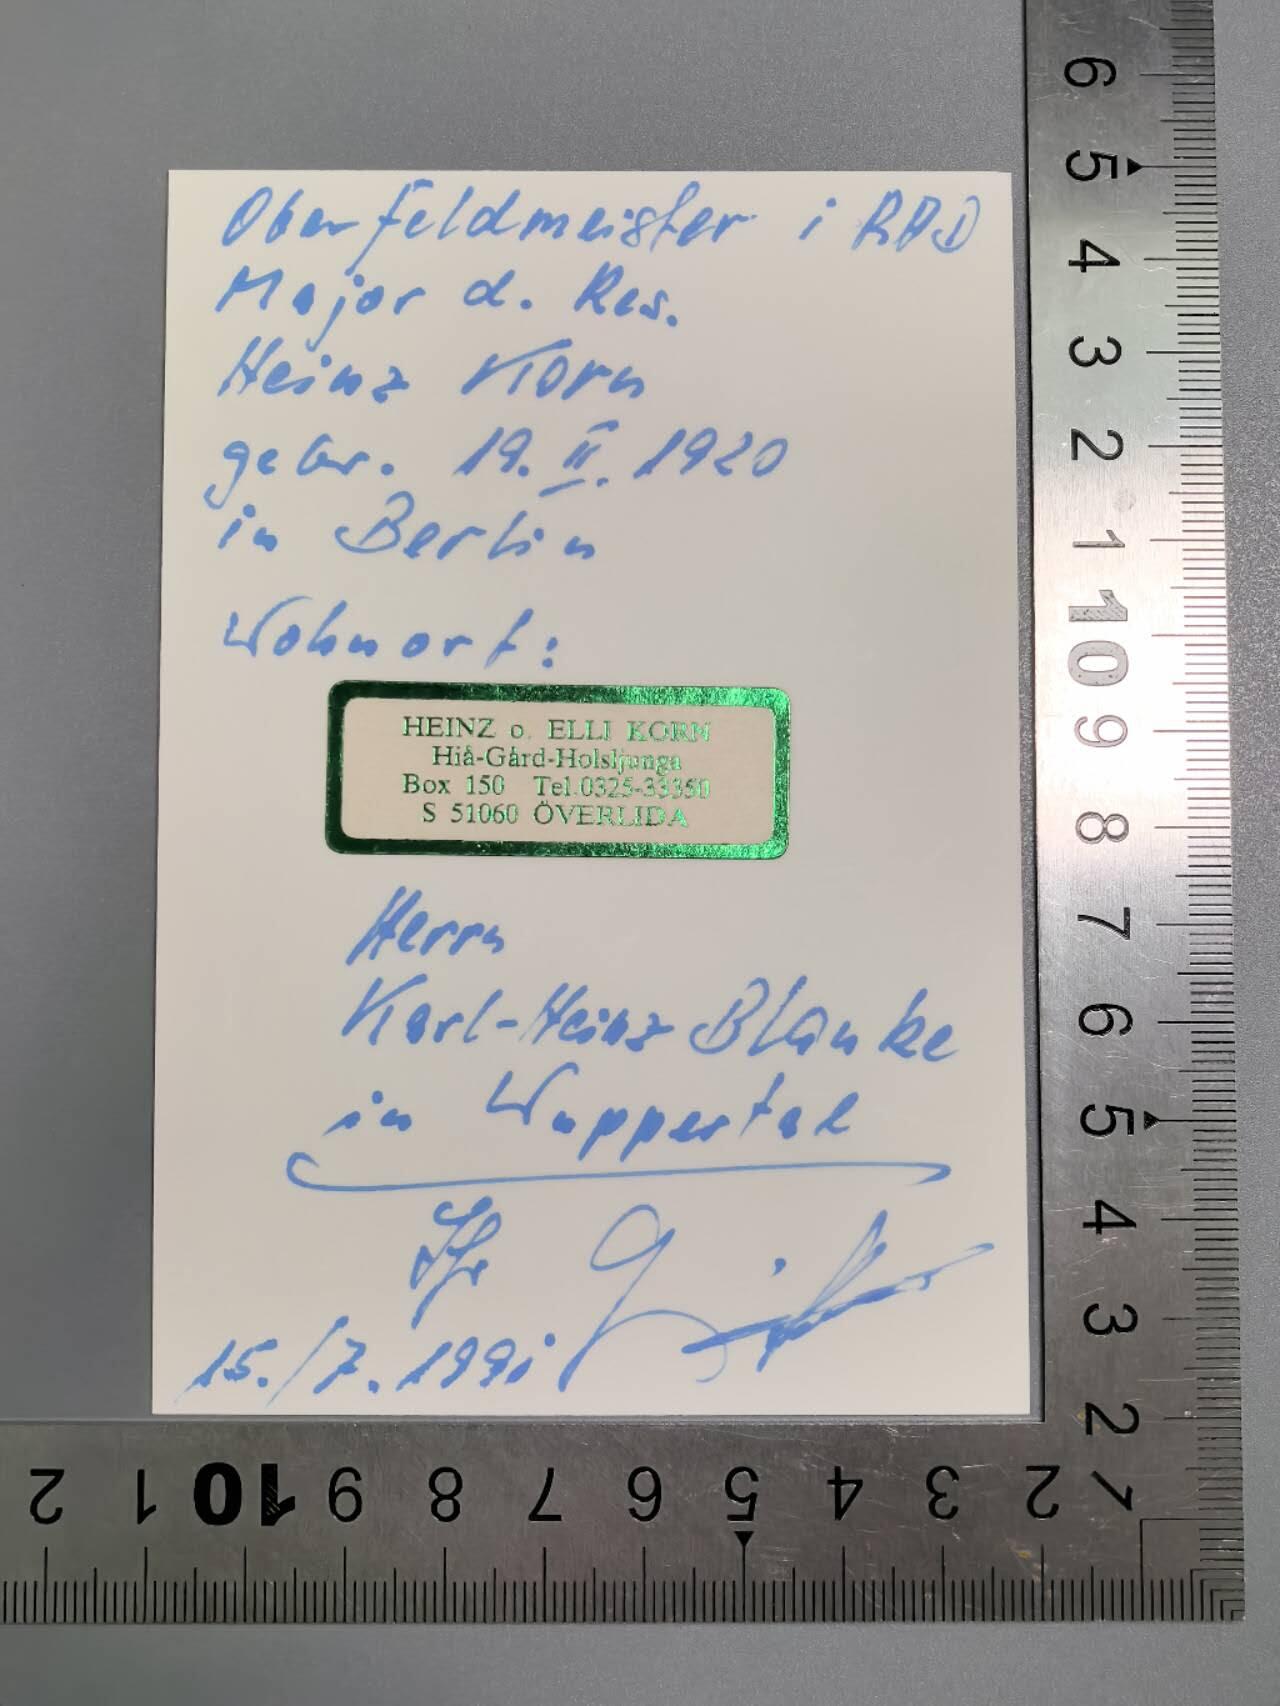 Oberfeldmeister i RAD
Major d. Res.
Heinz Korn
gebr. 19. II. 1920
in Berlin
Wohnort:
HEINZ o. ELLI KORN
Hiå-Gård-Holsljunga
Box 150 Tel.0325-33350
S 51060 ÖVERLIDA
Herrn
Karl-Heinz Blanke
in Wuppertal
Ihr
15./7. 1991
6
5
4
3
2
1
10
9
8
7
6
5
4
3
2
2 1 10 9 8 7 6 5 4 3 2 1